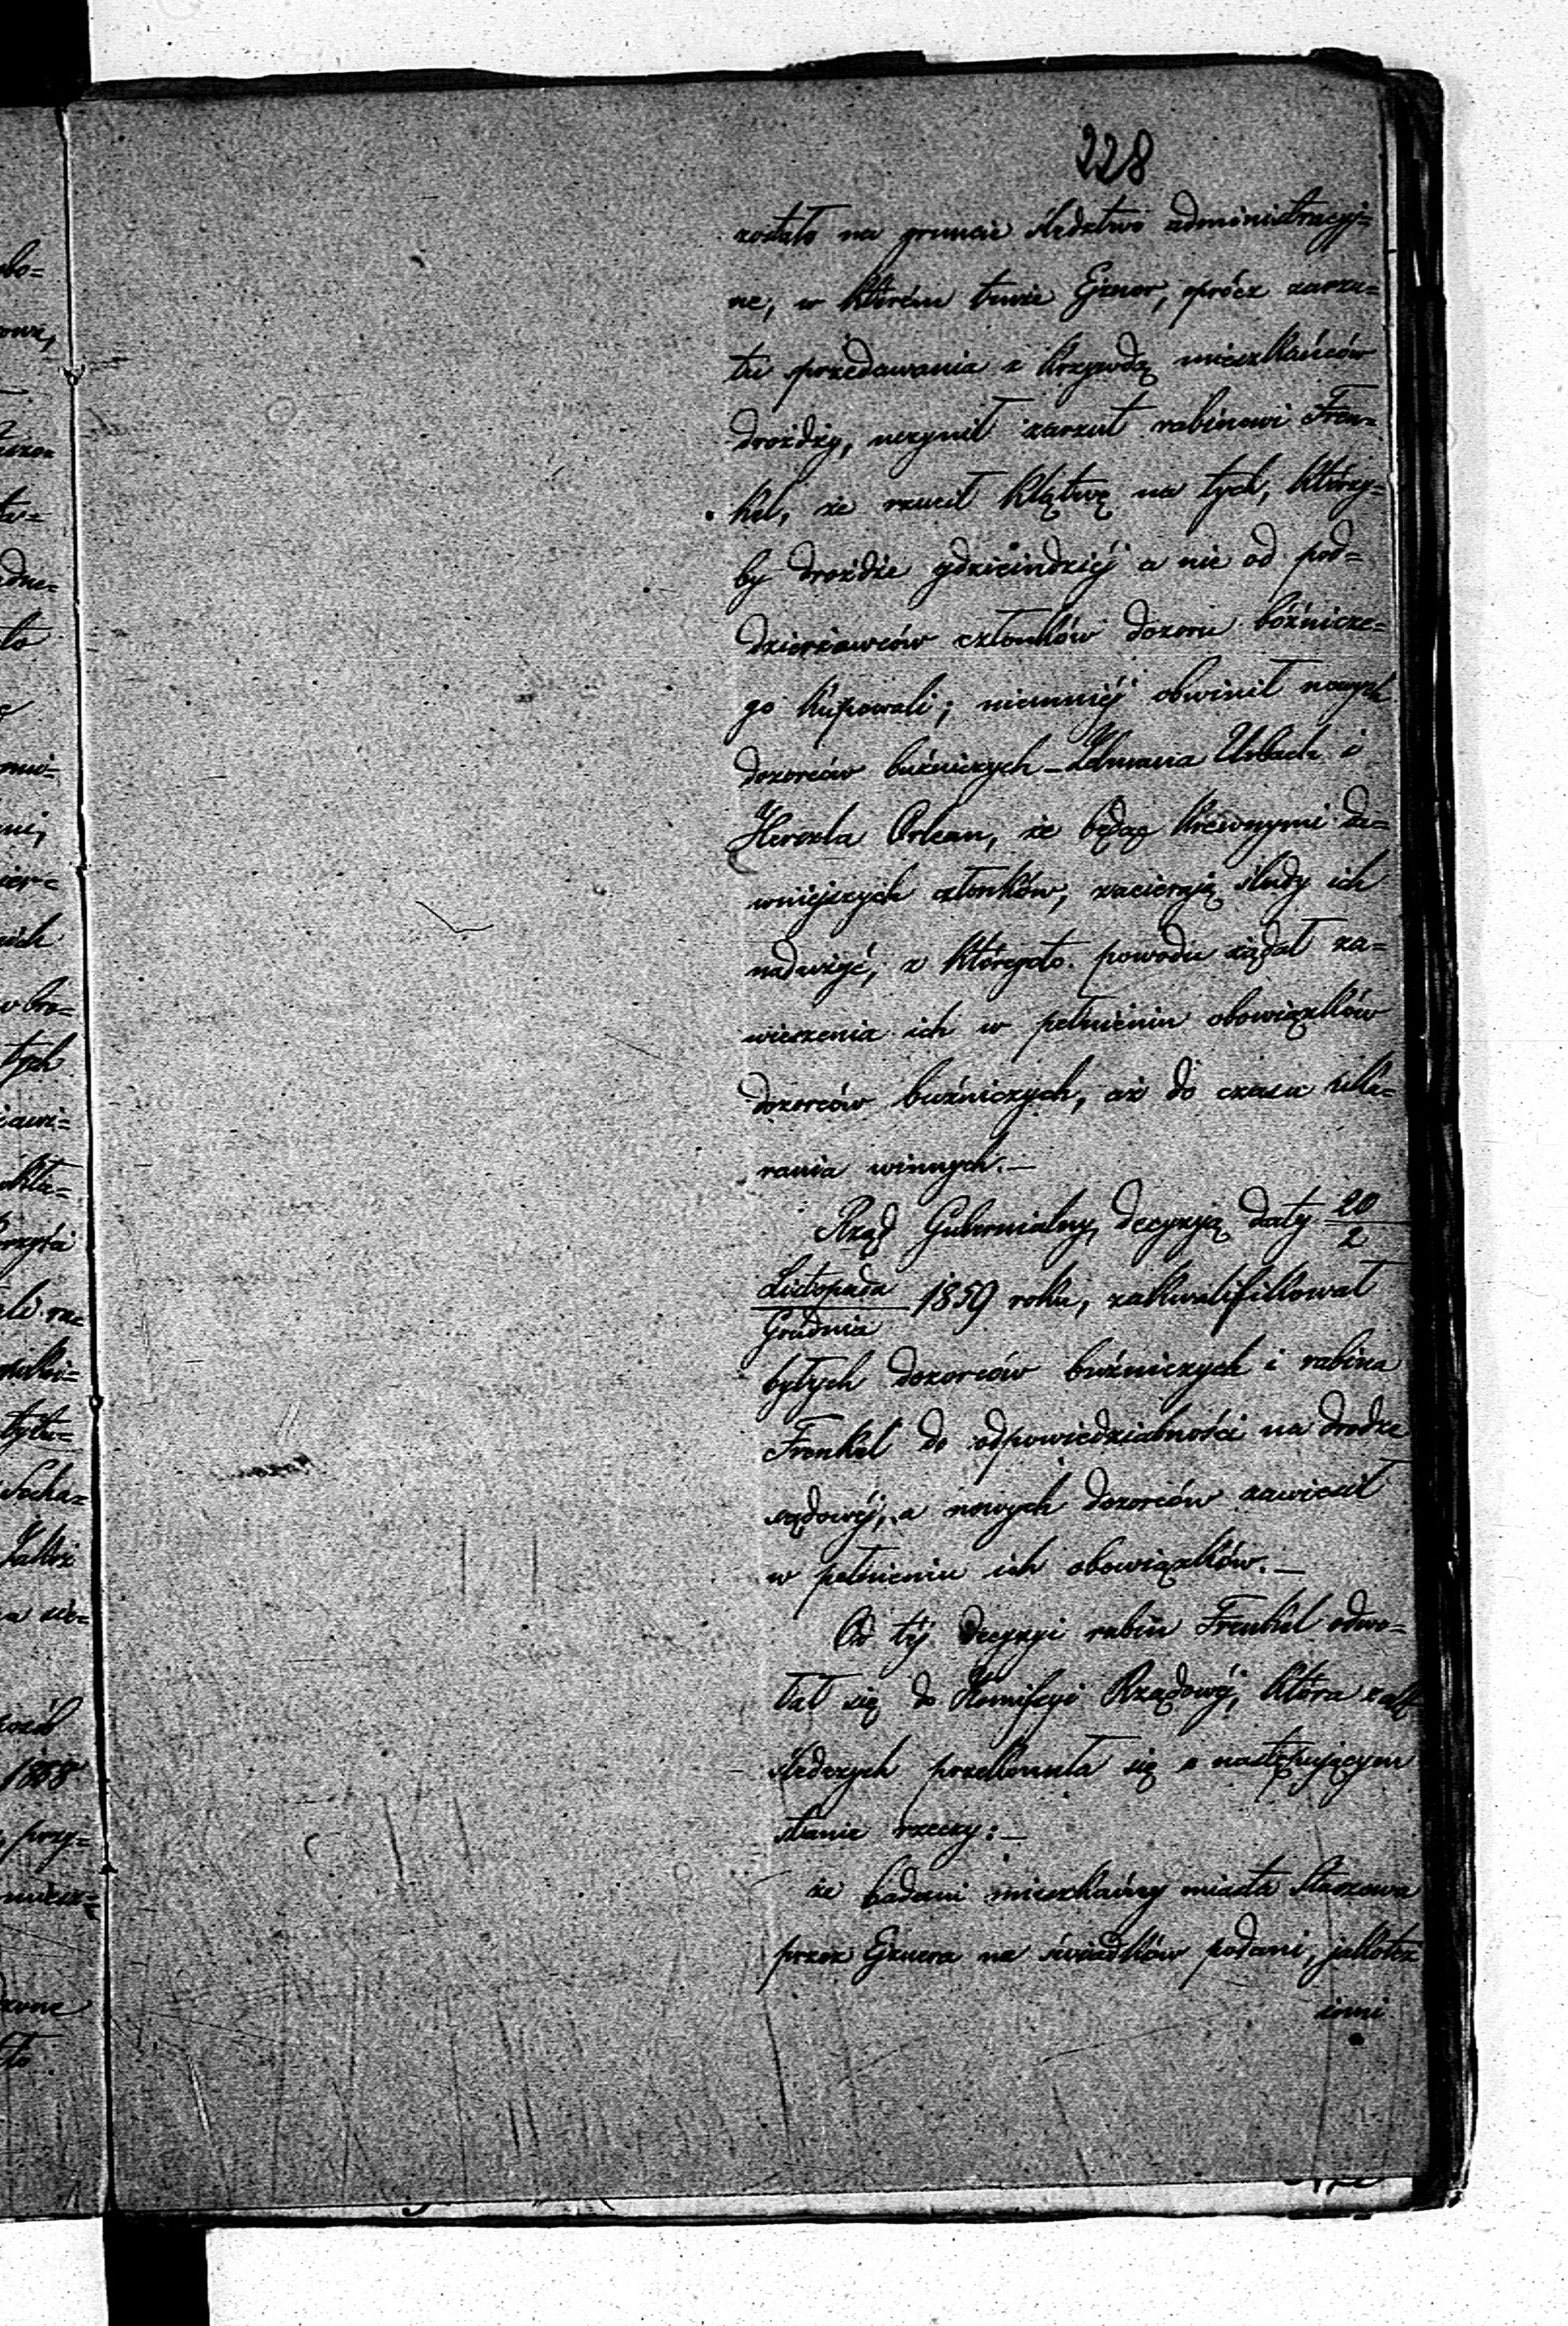 228
zostało na gruncie śledztwo administracyj=
ne, w którém tenże Ejzner, oprócz zarzu=
tu przedawania z krzywdą mieszkańców
drożdży, uczynił zarzut rabinowi Fren=
kel, że rzucił klątwę na tych, którzy=
by drożdże gdzieindziéj a nie od pod=
dzierżawców członków dozoru bóźnicze=
go kupowali; niemniéj obwinił nowych
dozorców buźniczych – Zelmana Urbach i
Herszla Orlean, że będąc krewnymi da=
wniejszych członków, zacierają ślady ich
nadużyć, z któregoto powodu żądał za=
wieszenia ich w pełnieniu obowiązków
dozorców buźniczych, aż do czasu uka=
rania winnych. –
Rząd Gubernialny, decyzją daty 20/2
Listopada/Grudnia 1859 roku, zakwalifikował
byłych dozorców buźniczych i rabina
Frenkel do odpowiedzialności na drodze
sądowéj, a nowych dozorców zawiesił
w pełnieniu ich obowiązków. –
Od téj decyzyi rabin Frenkel odwo=
łał się do Kommissyi Rządowéj, która z akt
śledczych przekonała się o następującym
stanie rzeczy: –
że badani mieszkańcy miasta Staszowa
przez Ejznera na świadków podani, jakoteż
inni
bo=
to
ich
tych
1858
przy=